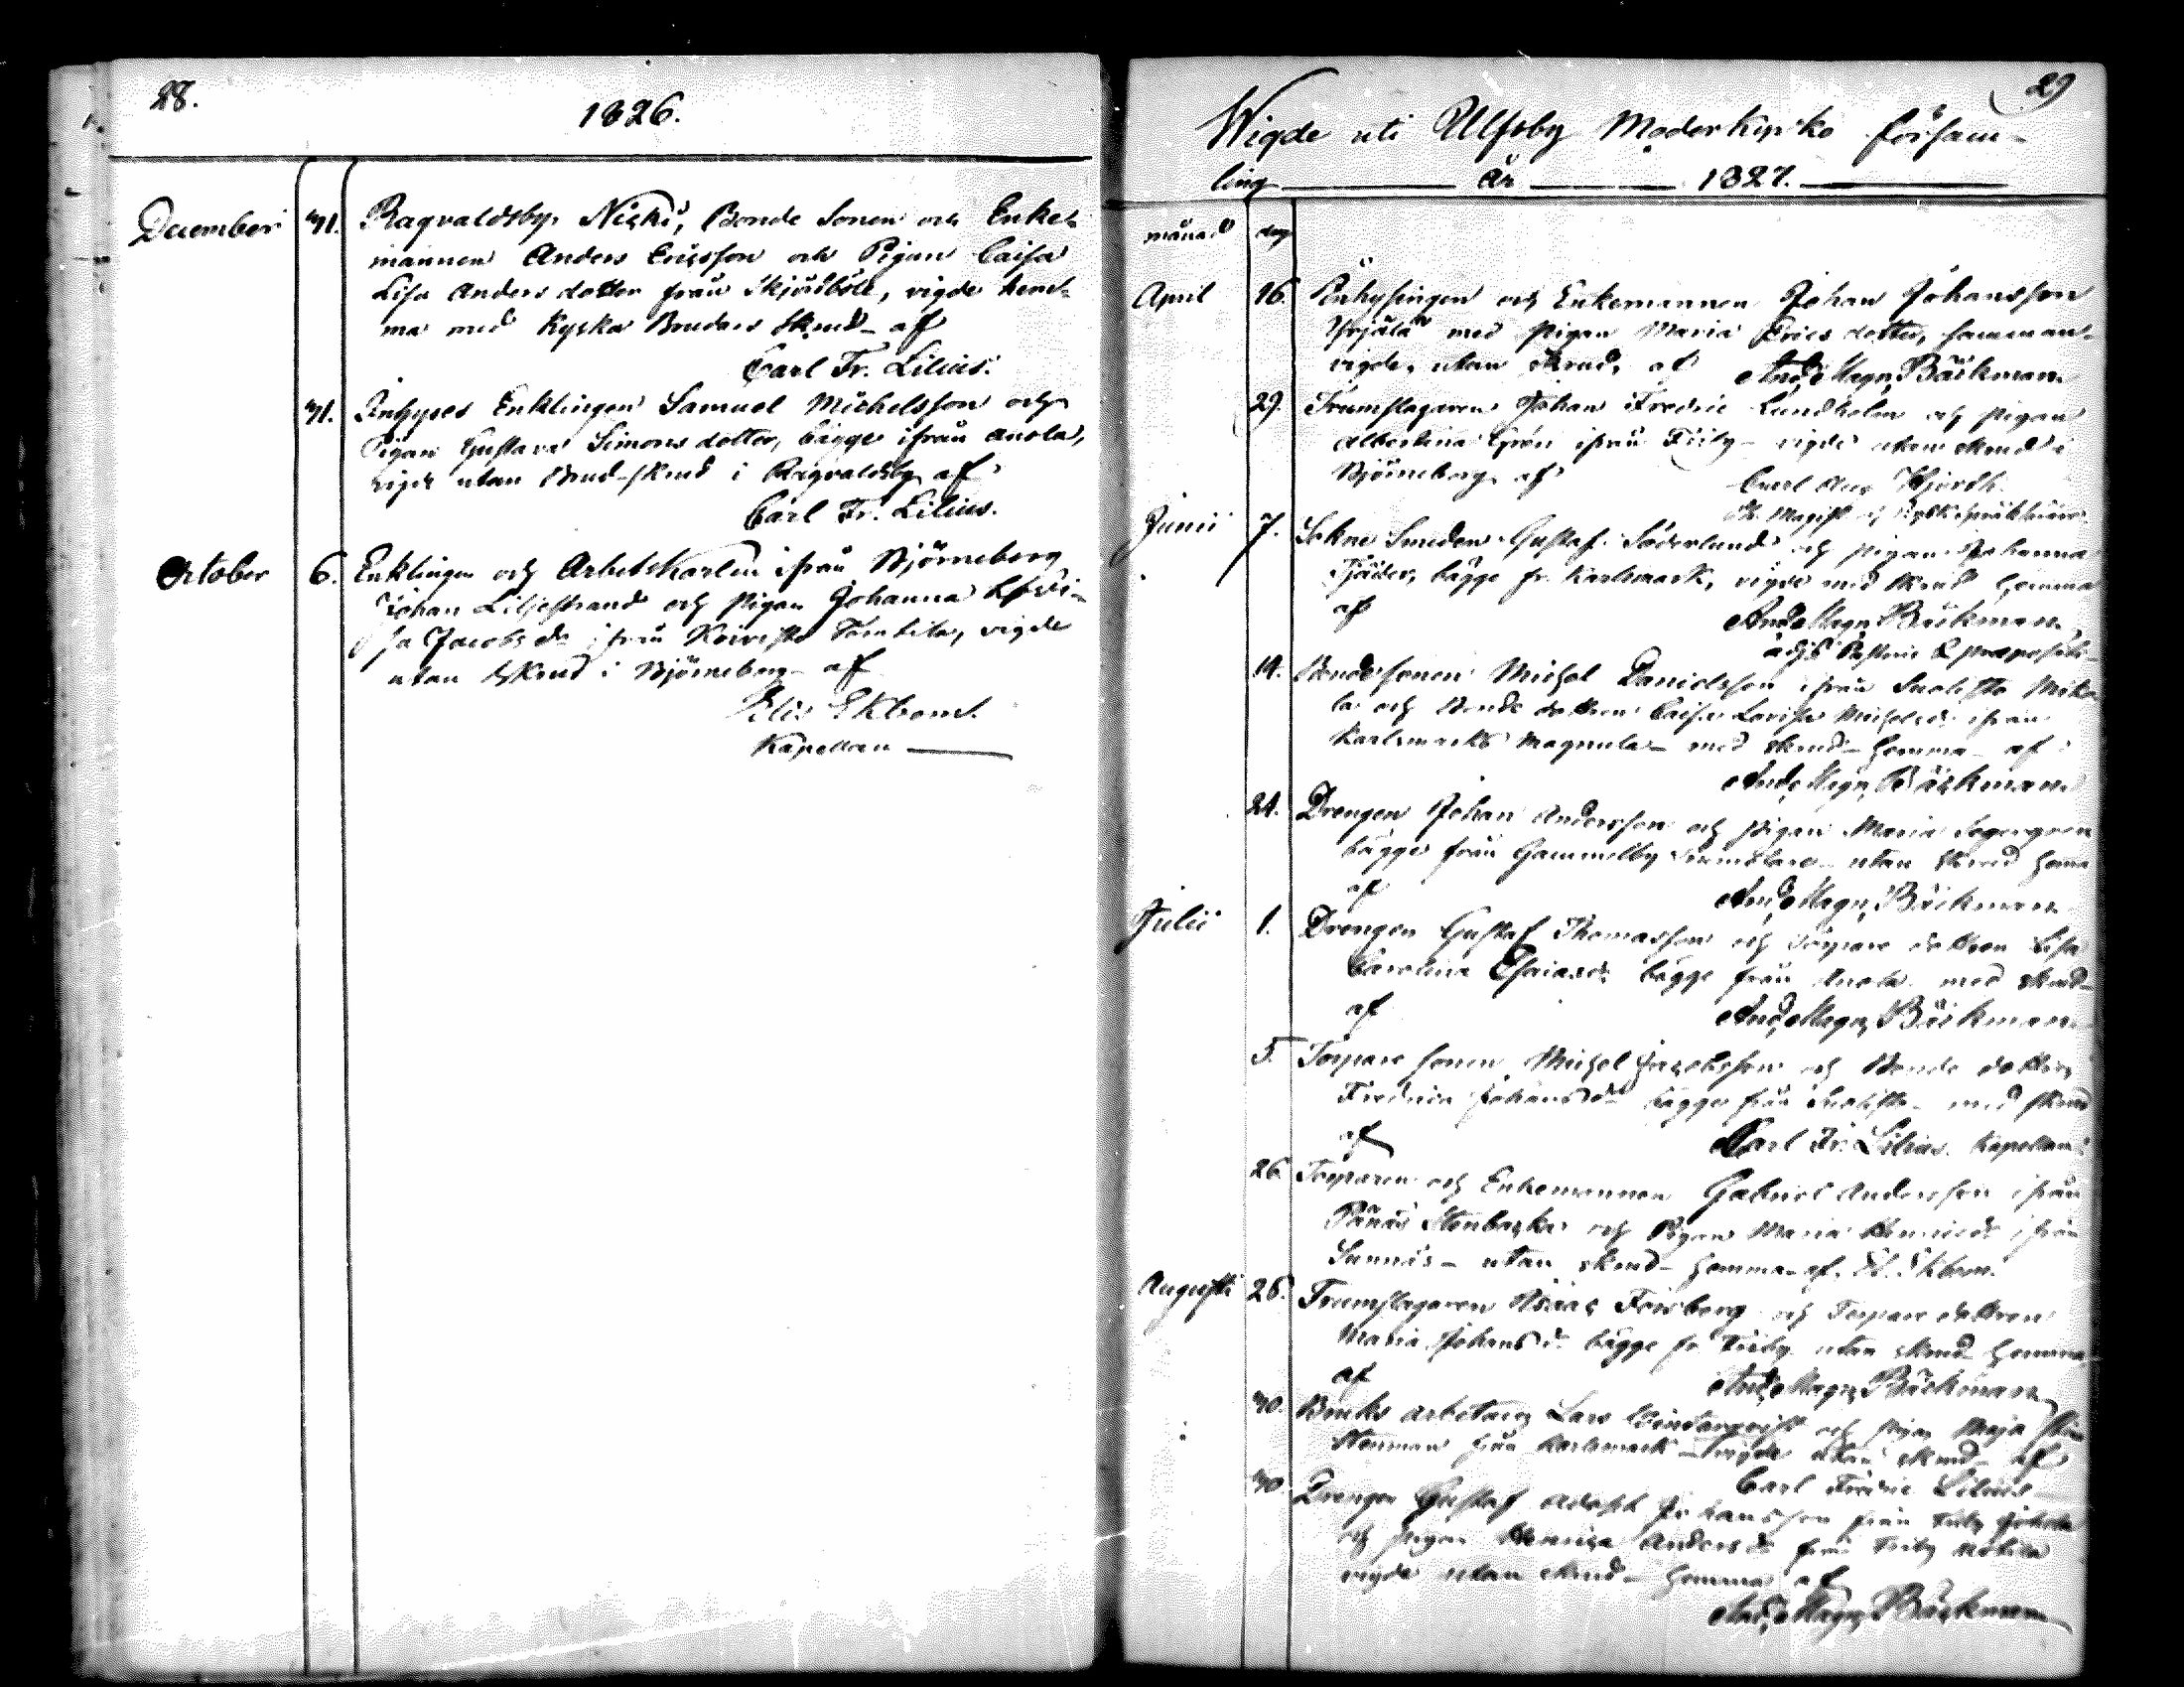 28.
1826.
December 31. Ragvaldsby Niski, Bonde Sonen och Enke-
mannen Anders Ericsson och Pigan Caisa
Lisa Anders dotter från Skjösböle, vigde hem-
ma med Kyrko Brudars skrud af
Carl Fr. Lilius.
31. Inhyses Enklingen Samuel Michelsson och
Pigan Gustava Simons dotter, bägge ifrån Anola,
vigde utan Brud-skrud i Ragvaldsby af
Carl Fr. Lilius.
October 6. Enklingen och Arbetskarlen ifrån Björneborg
Johan Liljestrand och Pigan Johanna Lovi-
sa Jacobs dr ifrån Koivisto, vigde
utan skrud i Björneborg af
Elis Ekbom.
Kapellan
29
Wigde uti Ulfsby Moderkyrko församling
ling år 1827.
månad dag
April 16. Inhysingen och Enkemannen Johan Johansson
med pigan Maria Erics dotter, samman-
vigde, utan skrud, af And. Magn. Bäckman
29. Trumslagaren Johan Fredric Lundholm och pigan
Albertina Grön ifrån Friby vigde utan skrud i
Björneborg af Carl Aug Hjordh.
Ph. Magist.
Junii 7. Sokne Smeden Gustaf Söderlund och pigan Johanna
bägge fr. Karlsmark, vigde med skrud hemma
af And. Magn. Bäckman
adj.
14. Bondesonen Michel Danielsson ifrån Suolisto Mika
la och Bonde dottren Caisa Lovisa Michelsdr ifrån
Karlsmarks Magnula med skrud hemma af
And. Magn. Bäckman
24. Drengen Johan Andersson och pigan Maria Segergren
bägge från Gammelby utan skrud hema
af And. Magn. Bäckman
Julii 1. Drengen Gustaf Thomasson och Torpare dottren Lisa
Carolina Esaiasdr bägge från Anola med skrud
af And. Magn. Bäckman
5. Torpare sonen Michel Jacobsson och Bonde dottren
Fredrica Johansdr bägge från Suolisto med skrud
af Carl Fr. Lilius. Kapellan
26. Torparen och Enkemannen Gabriel Andersson ifrån
Pänäs Stenbacka och Pigan Maria Henricsdr ifrån
Sunnäs utan skrud hemma af El. Ekbom.
Augusti 26. Trumslagaren Isaac Forsberg och Torpare dottren
Maria Johansdr bägge fr Friby utan skrud hemma
af And. Magn. Bäckman
30. Bruks arbetaren Lars Winterqvist och Pigan Maja
Stenman från Karlsmark vigde utan skrud af
Carl Fredric Lilius
30. Drengen Gustaf Adolph Johansson från Friby
och pigan Henrica Andersdr från Friby
vigde utan skrud hemma af
And. Magn. Bäckman